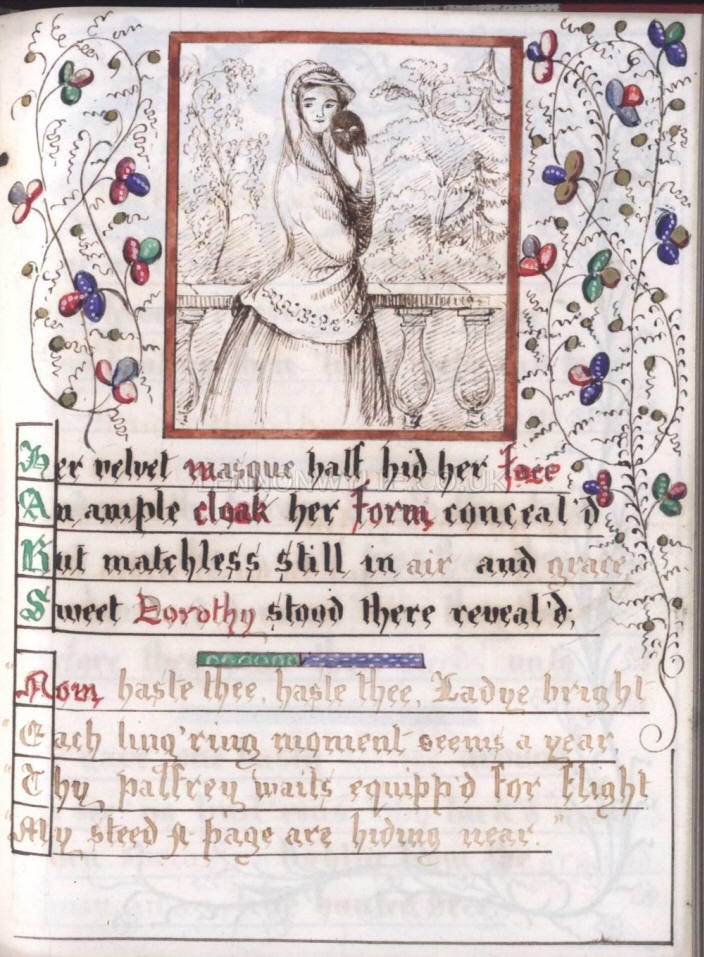 Her velvet masque half hid her face
An ample cloak her form conceal'd
But matchless still in air and grace
Sweet Dorothy stood there reveal'd;
"Now haste thee, haste thee, Ladye bright
"Each ling'ring moment seems a year,
"Thy palfrey waits equipp'd for flight
"My steed & page are hiding near."